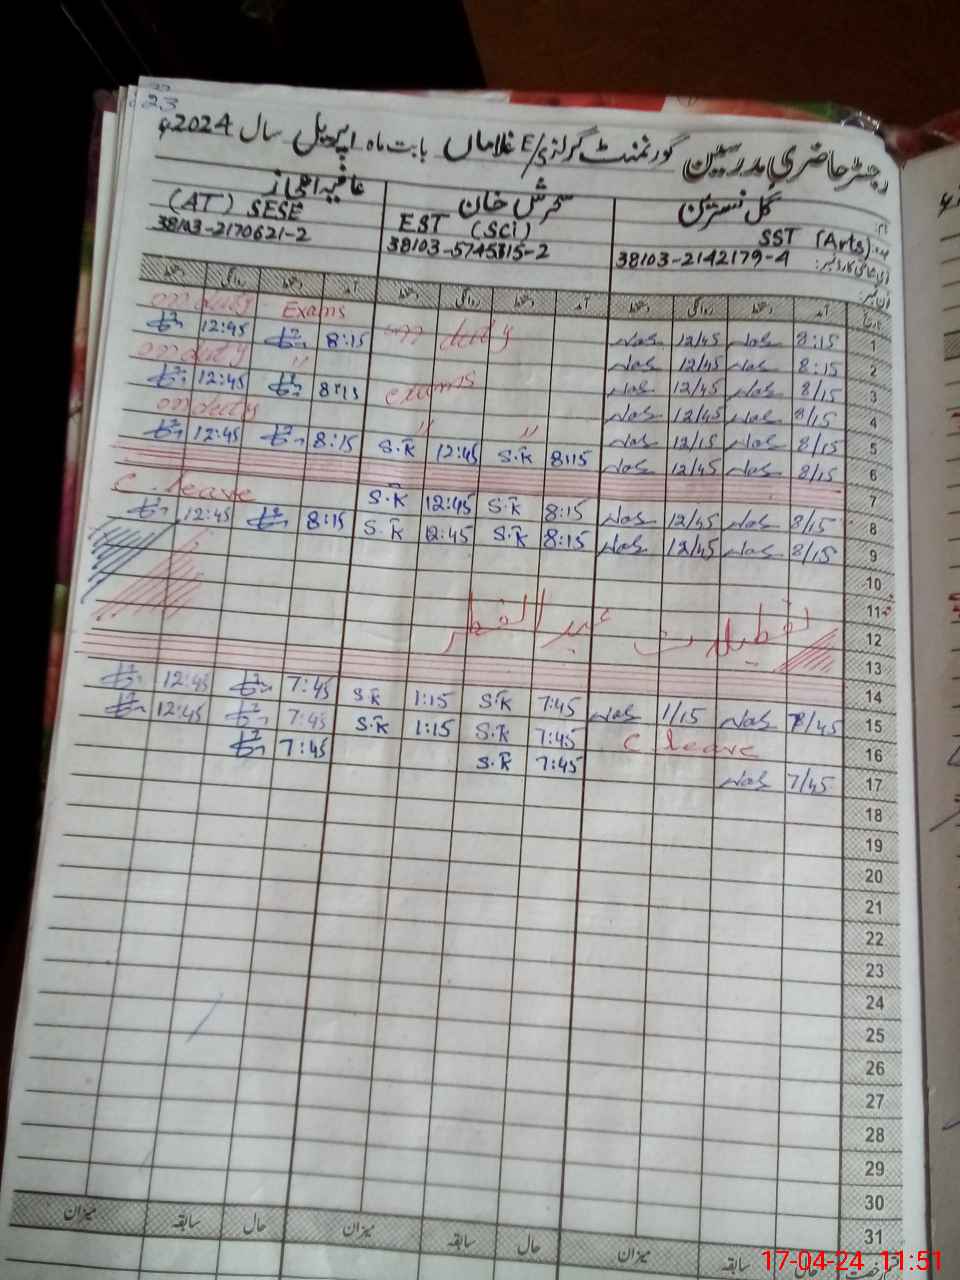 23
رجسٹر حاضری مدرسین گورنمنٹ گرلز E/S غلاماں بابت ماہ اپریل سال 2024ء
نام: گل نسرین سحرش خان عافیہ اعجاز
عہدہ SST (Arts) EST (Sci) (AT) SESE
38103-2142179-4 38103-5745815-2 38103-2170621-2
تاریخ آمد دستخط روانگی دستخط آمد دستخط روانگی دستخط آمد دستخط روانگی دستخط
1 8:15 Nas 12/45 Nas on duty on duty Exams
2 8:15 Nas 12/45 Nas 8:15 12:45
3 8/15 Nas 12/45 Nas exams on duty "
4 8/15 Nas 12/45 Nas 8:15 12:45
5 8/15 Nas 12/15 Nas " " on duty
6 8/15 Nas 12/45 Nas 8:15 S.K 12:45 S.K 8:15 12:45
7
8 8/15 Nas 12/45 Nas 8:15 S.K 12:45 S.K C. leave
9 8/15 Nas 12/45 Nas 8:15 S.K 12:45 S.K 8:15 12:45
10
11
12 تعطیلات عید الفطر
13
14
15 7/45 Nas 1/15 Nas 7:45 S.K 1:15 S.K 7:45 12:45
16 C leave 7:45 S.K 1:15 S.K 7:45 12:45
17 7/45 Nas 7:45 S.K 7:45
18
19
20
21
22
23
24
25
26
27
28
29
30
31
حال سابقہ میزان حال سابقہ میزان حال سابقہ میزان
17-04-24 11:51